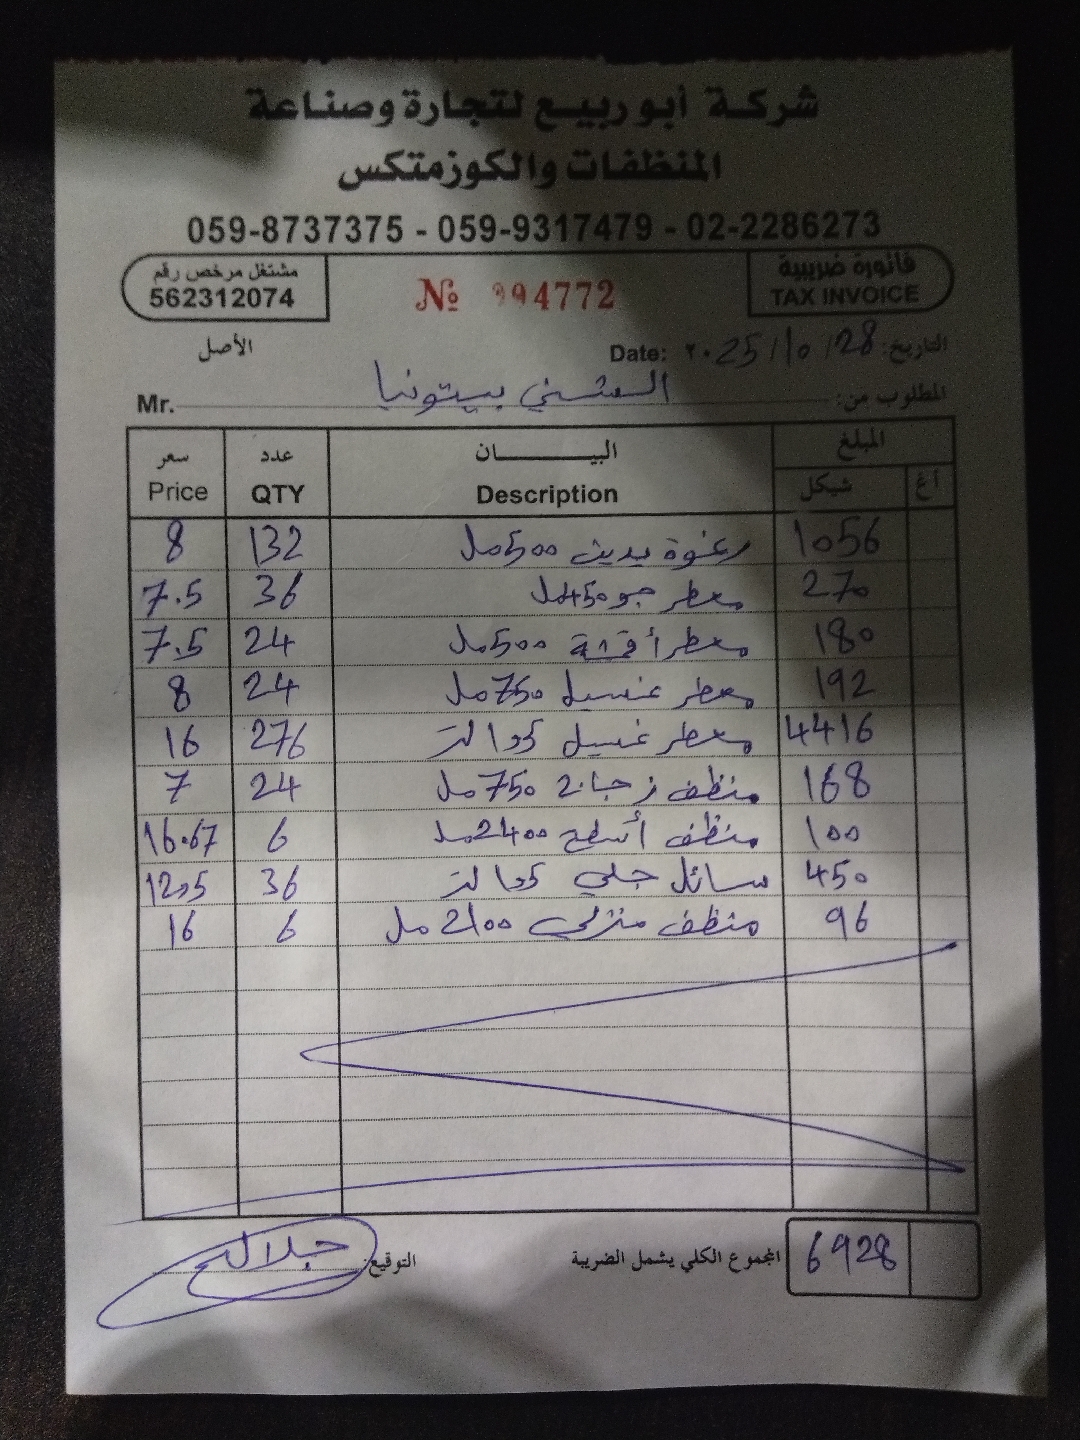 شركة أبو ربيع لتجارة وصناعة
المنظفات والكوزمتكس
059-8737375 - 059-9317479 - 02-2286273
فاتورة ضريبية
TAX INVOICE
№ 994772
مشتغل مرخص رقم
562312074
الأصل
التاريخ: 28 / 10 / ٢٠25 Date:
المطلوب من: بيتونيا Mr.
المبلغ البيـــــــان عدد سعر
أغ شيكل Description QTY Price
1056 رغوة يدين 500مل 132 8
270 معطر جو 450مل 36 7.5
180 معطر أقمشة 500مل 24 7.5
192 معطر غسيل 750مل 24 8
4416 معطر غسيل لتر 276 16
168 منظف زجاج 750مل 24 7
100 منظف أسطح 2400مل 6 16.67
450 سائل جلي لتر 36 12,5
96 منظف منزلي 2100 مل 6 16
6928 المجموع الكلي يشمل الضريبة
التوقيع: